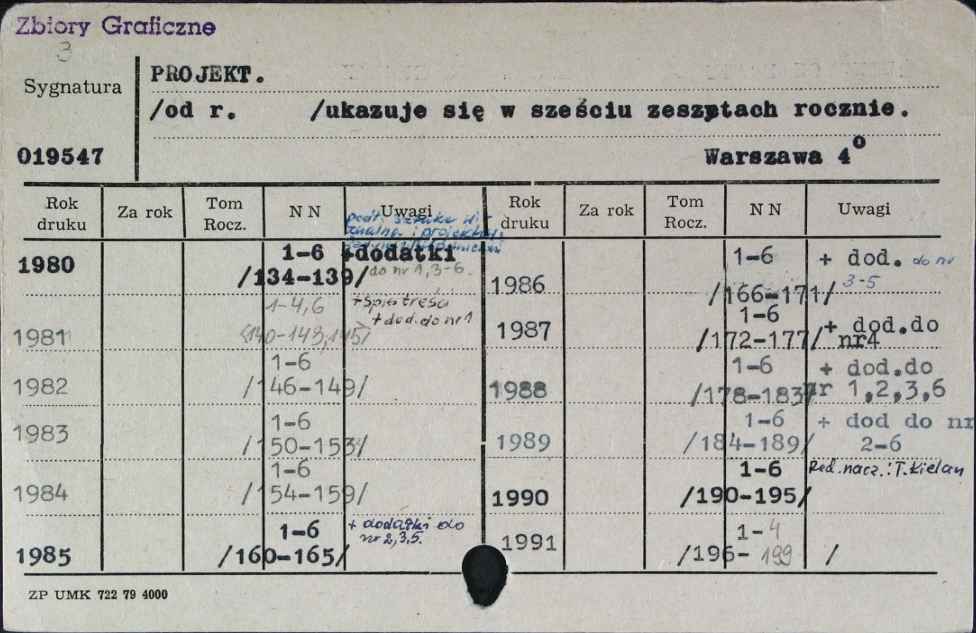 Zbiory Graficzne
3
Sygnatura
PROJEKT.
/od r. /ukazuje się w sześciu zeszytach rocznie.
019547
Warszawa 4º
Rok druku Za rok Tom Rocz. N N Uwagi Rok druku Za rok Tom Rocz. N N Uwagi
podt. sztuka wi-
zualna i projektow.
1980 1-6 +dodatki
/134-139/ do nr 1,3-6.
1981 1-4,6 +Spis treści
+dod. do nr 1
1982 1-6
/146-149/
1983 1-6
/150-153/
1984 1-6
/154-159/
1985 1-6 + dodatki do
/160-165/ nr 2,3,5.
1986 1-6 + dod. do nr
/166-171/ 3-5
1987 1-6 + dod.do
/172-177/ nr4
1988 1-6 + dod.do
/178-183/ nr 1,2,3,6
1989 1-6 + dod do nr
/184-189/ 2-6
1990 1-6 Red. nacz.: T. Kielan
/190-195/
1991 1-4
/196-199 /
ZP UMK 722 79 4000